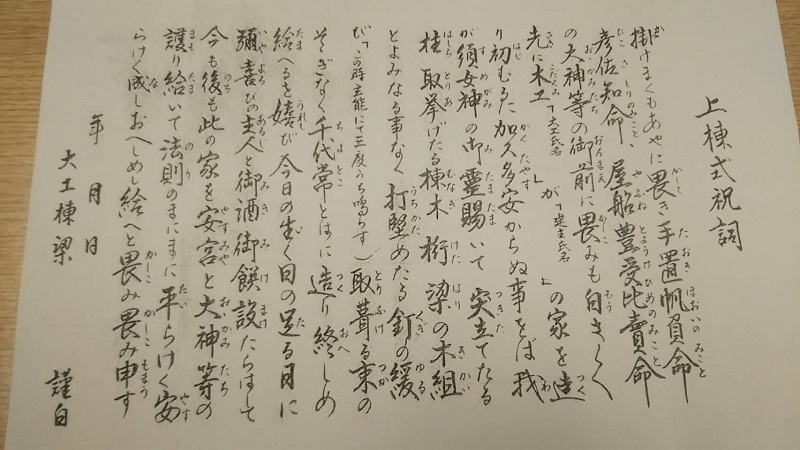 上棟式祝詞
掛けまくもあやに畏き手置帆負命
彦佐知命、屋船豊受比賣命
の大神等の御前に畏みも白さく
先に木工「大工氏名」が「建主氏名」の家を造
り初むるた加久多安からぬ事をば我
が須女神の御靈賜いて突立てたる
柱取挙げたる棟木桁梁の木組
とよみなる事なく打堅めたる釘の緩
び「この時玄能にて三度うち鳴らす」取葺る束の
そぎなく千代常とはに造り終しめ
給へるを嬉び今日の生く日の足る日に
彌喜びの主人と御酒御饌設たらはして
今も後も此の家を安宮と大神等の
護り給いて法則のまにまに平らけく安
らけく成しおへしめ給へと畏み畏み申す
年 月 日
大工棟梁 謹白